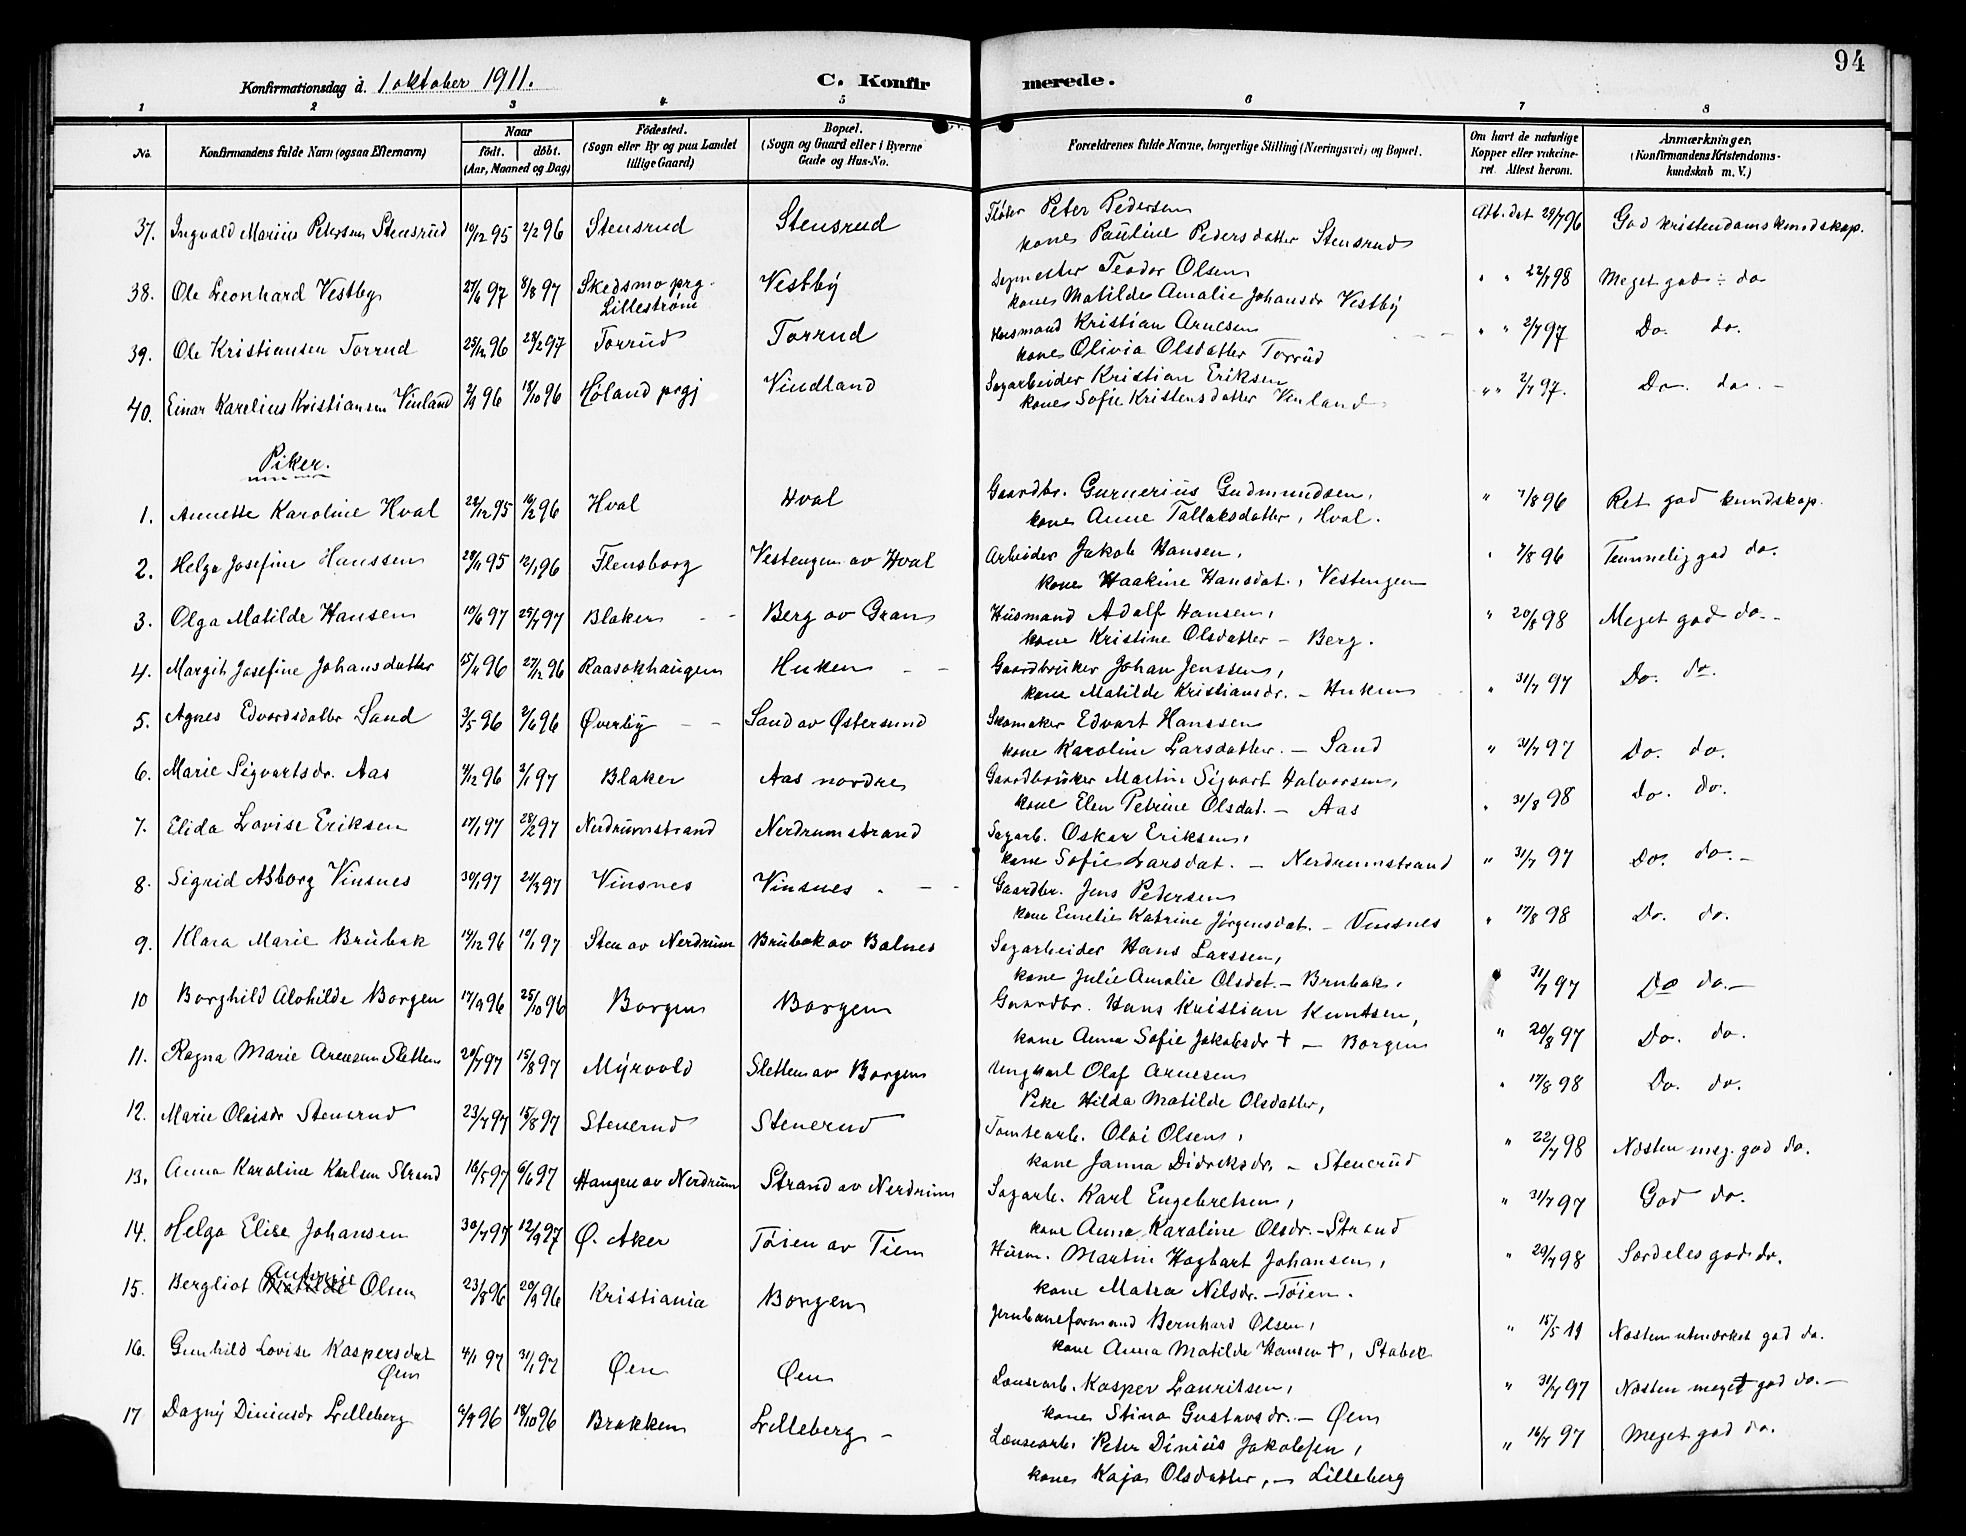 94
Konfirmationsdag d. 1 oktober 1911.
C. Konfirmerede.
1 2 3 4 5 6 7 8
No. Konfirmandens fulde Navn (ogsaa Efternavn) Naar født. døbt. (Aar, Maaned og Dag) Fødested. (Sogn eller By og paa Landet tillige Gaard) Bopæl. (Sogn og Gaard eller i Byerne Gade og Hus-No. Forældrenes fulde Navne, borgerlige Stilling (Næringsvei) og Bopæl. Om havt de naturlige Kopper eller vakcineret. Attest herom. Anmærkninger. (Konfirmandens Kristendomskundskab m. V.)
37. Ingvald Marius Petersen Stensrud 10/12 95 2/2 96 Stensrud Stensrud Fløter Peter Pedersen
kone Pauline Pedersdatter Stensrud Att. dat 29/7 96 God kristendomskundskap.
38. Ole Leonhard Vestby 27/6 97 8/8 97 Skedsmo prg. Lillestrøm Vestby Teodor Olsen
kone Matilde Amalie Johansdr Vestby " " 22/7 98 Meget god do
39. Ole Kristiansen Torrud 25/12 96 28/2 97 Torrud Torrud Husmand Kristian Arnesen
kone Olivia Olsdatter Torrud " " 2/7 97 Do. do.
40. Einar Karelius Kristiansen Vinland 2/9 96 18/10 96 Høland prgj Vindland Sagarbeider Kristian Eriksen
kone Sofie Kristensdatter Vinland " " 2/7 97. Do. do. -
Piker.
1. Annette Karoline Hval 28/12 95 16/2 96 Hval Hval Gaardbr. Gunerius Gudmundsen,
kone Anne Tallaksdatter, Hval. " 7/8 96 Ret god kundskap.
2. Helga Josefine Hanssen 28/11 95 12/1 96 Flensborg Vestengen av Hval Arbeider Jakob Hansen,
kone Haakine Hansdat., Vestengen " 7/8 96 Temmelig god do.
3. Olga Matilde Hansen 10/6 97 25/7 97 Blaker Berg av Gran Husmand Adolf Hansen,
kone Kristine Olsdatter - Berg. " 20/8 98 Meget god do.
4. Margit Josefine Johansdatter 15/11 96 27/12 96 Raasokhaugen Huken Gaardbruker Johan Jenssen,
kone Matilde Kristiansdr. - Huken " 31/7 97 Do. do.
5. Agnes Edvardsdatter Sand 3/5 96 2/6 96 Øverby Sand av Østersund Skomaker Edvart Hanssen
kone Karoline Larsdatter. - Sand " 31/7 97 Do. do.
6. Marie Sigvartsdr. Aas 4/12 96 2/1 97 Blaker Aas nordre Gaardbruker Martin Sigvart Halvorsen,
kone Elen Petrine Olsdat. - Aas " 31/8 98 Do. do.
7. Elida Lovise Eriksen 17/1 97 28/2 97 Nerdrumstrand Nerdrumstrand Sagarb. Oskar Eriksen,
kone Sofie Larsdat. - Nerdrumstrand " 31/7 97 Do. do. -
8. Sigrid Asborg Vinsnes 30/1 97 21/3 97 Vinsnes Vinsnes Gaardbr. Jens Pedersen
kone Emelie Katrine Jørgensdat. - Vinsnes " 17/8 98 Do. do.
9. Klara Marie Brubak 14/12 96 10/1 97 Sten av Nerdrum Brubak av Balnes Sagarbeider Hans Larssen,
kone Julie Amalie Olsdat. - Brubak. 31/7 97 Do do. -
10 Borghild Alvhilde Borgen 17/9 96 25/10 96 Borgen Borgen Gaardbr. Hans Kristian Kuntsen,
kone Anna Sofie Jakobsdr + - Borgen " 20/8 97 Do. do.
11. Ragna Marie Arnesen Sletten 20/7 97 15/8 97 Myrvold Sletten av Borgen Ungkarl Olaf Arnesen
Pike Hilda Matilde Olsdatter, " 17/8 98 Do. do.
12. Marie Olaisdr Stenerud 23/7 97 15/8 97 Stenerud Stenerud Tomtearb. Olai Olsen,
kone Janna Didreksdr. - Stenerud " 22/7 98 Næsten meg. god do.
13. Anna Karoline Karlsen Strand 16/5 97 6/6 97 Haugen av Nerdrum Strand av Nerdrum Sagarb. Karl Engebretsen,
kone Anna Karoline Olsdr. - Strand " 31/7 97 God do.
14. Helga Elise Johansen 30/7 97 12/9 97 Ø. Aker Tøien av Tiem Husm. Martin Hagbart Johansen,
kone Matea Nilsdr. - Tøien. " 29/7 98 Særdeles god do.
15. Bergliot Antonie Olsen 23/8 96 20/9 96 Kristiania Borgen Jernbaneformand Bernhard Olsen,
kone Anna Matilde Hansen +, Stabek " 15/5 11 Næsten utmerket god do.
16. Gunhild Lovise Kaspersdat Øen 4/1 97 31/1 97 Øen Øen Lænsearb. Kasper Lauritsen,
kone Stina Gustavsdr. - Øen " 31/7 97 Næsten meget god do. -
17 Dagny Diniusdr Lilleberg 6/9 96 18/10 96 Brakken Lilleberg - Lænsearb. Peter Dinius Jakobsen,
kone Kaja Olsdatter, - Lilleberg " 16/7 97 Meget god do.